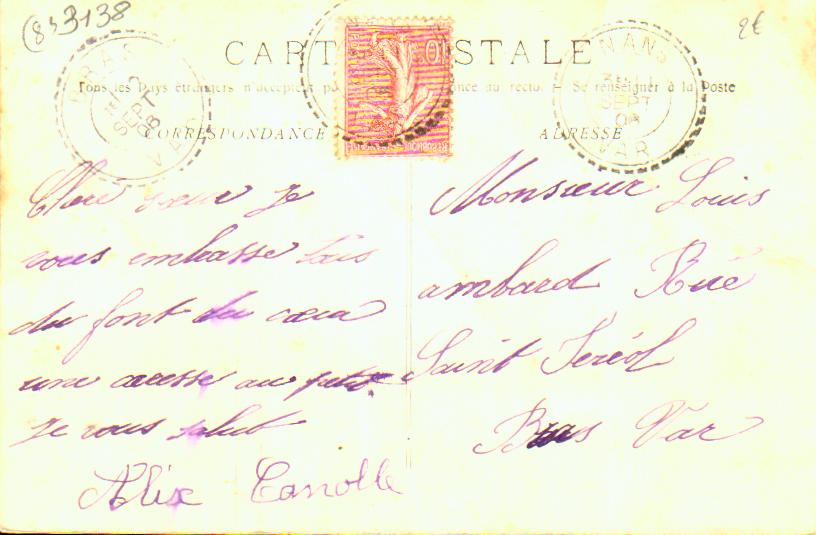 (83)3138
2€
CARTE POSTALE
Tous les Pays étrangers n'acceptent pas au recto. — Se renseigner à la Poste
CORRESPONDANCE
ADRESSE
BRAS
SEPT
08
VAR
10
NANS
SEPT
08
VAR
Chere sœur je
vous embrasse tous
du font du cœur
une caresse au petit
je vous salut
Alix Canolle
Monsieur Louis
ambard Rue
Saint Feréol
Bras Var